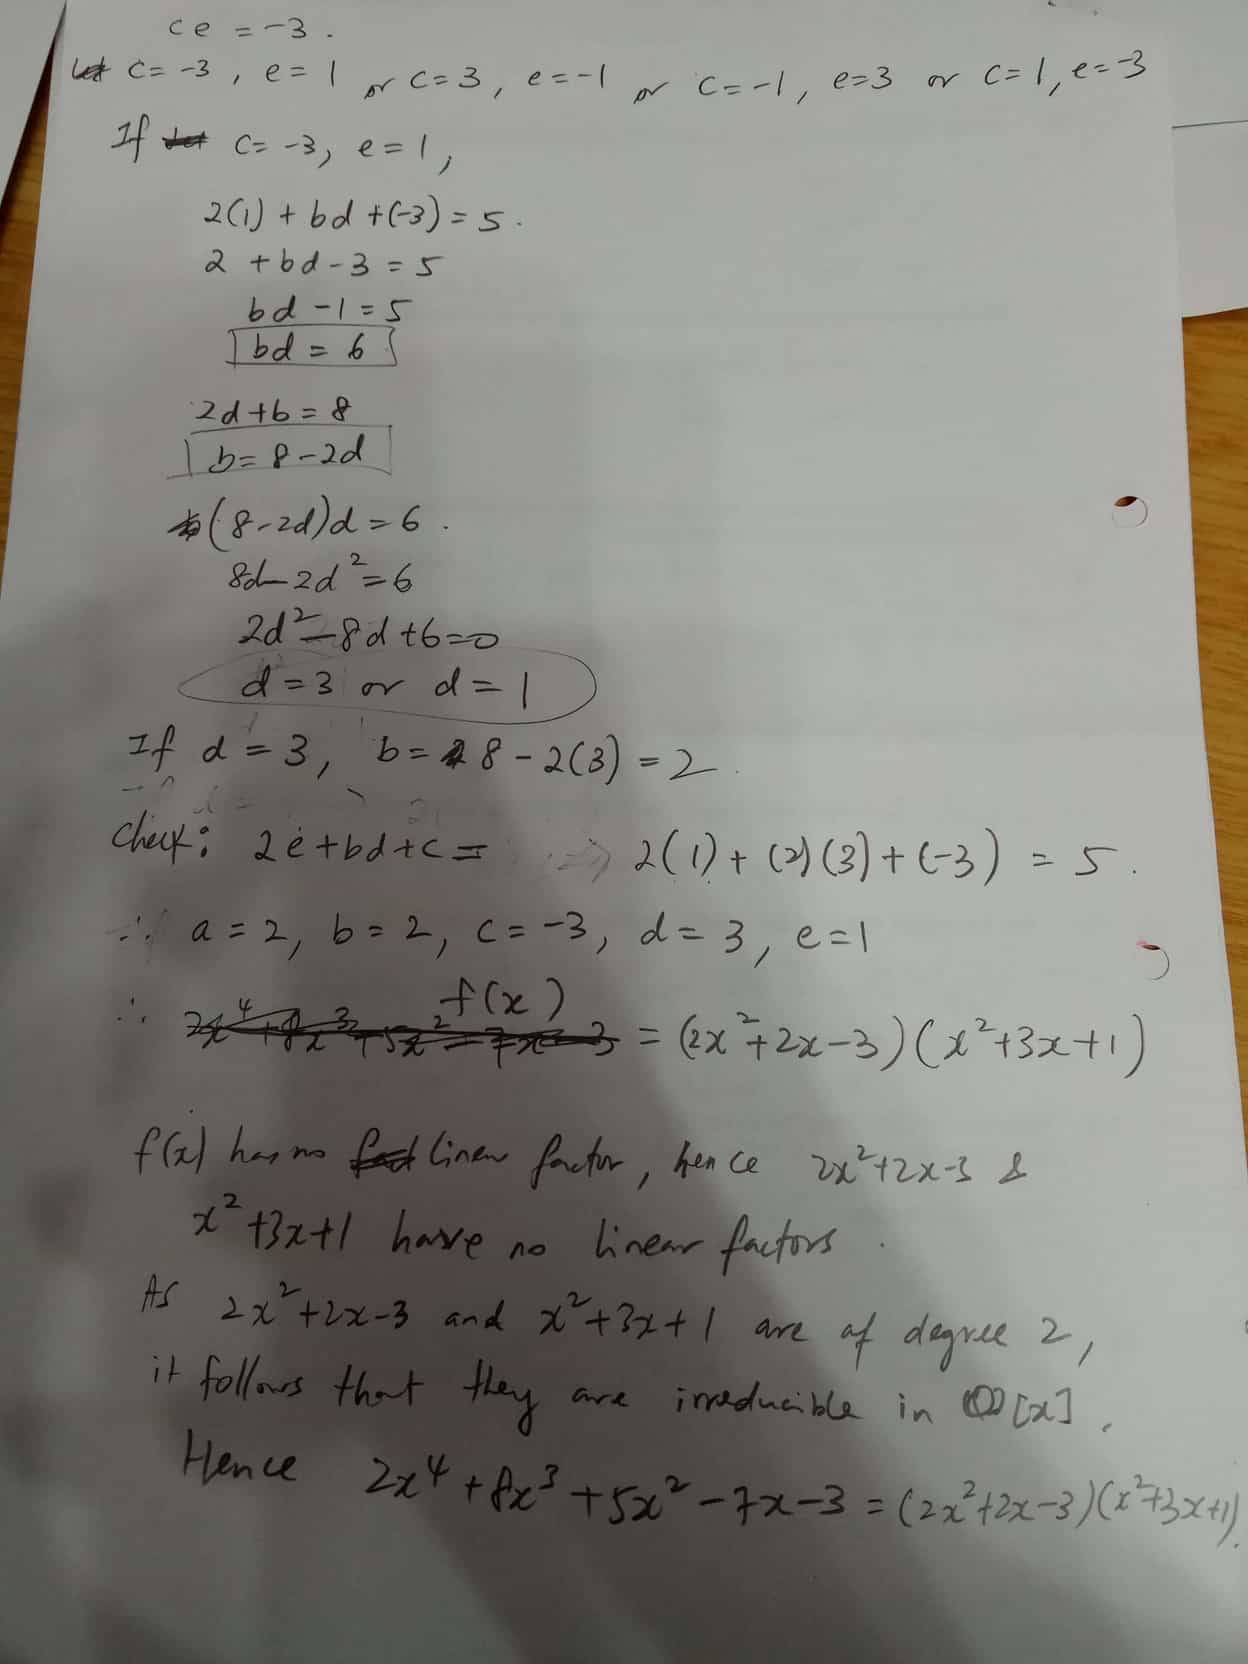 ce = -3.
c = -3, e = 1 or c = 3, e = -1 or c = -1, e = 3 or c = 1, e = -3
If c = -3, e = 1,
2(1) + bd + (-3) = 5.
2 + bd - 3 = 5
bd - 1 = 5
bd = 6
2d + b = 8
b = 8 - 2d
(8 - 2d)d = 6.
8d - 2d² = 6
2d² - 8d + 6 = 0
d = 3 or d = 1
If d = 3, b = 8 - 2(3) = 2
Check: 2e + bd + c = 2(1) + (2)(3) + (-3) = 5.
∴ a = 2, b = 2, c = -3, d = 3, e = 1
∴ f(x) = (2x² + 2x - 3)(x² + 3x + 1)
f(x) has no linear factor, hence 2x² + 2x - 3 &
x² + 3x + 1 have no linear factors.
As 2x² + 2x - 3 and x² + 3x + 1 are of degree 2,
it follows that they are irreducible in ℚ[x].
Hence 2x⁴ + 8x³ + 5x² - 7x - 3 = (2x² + 2x - 3)(x² + 3x + 1).